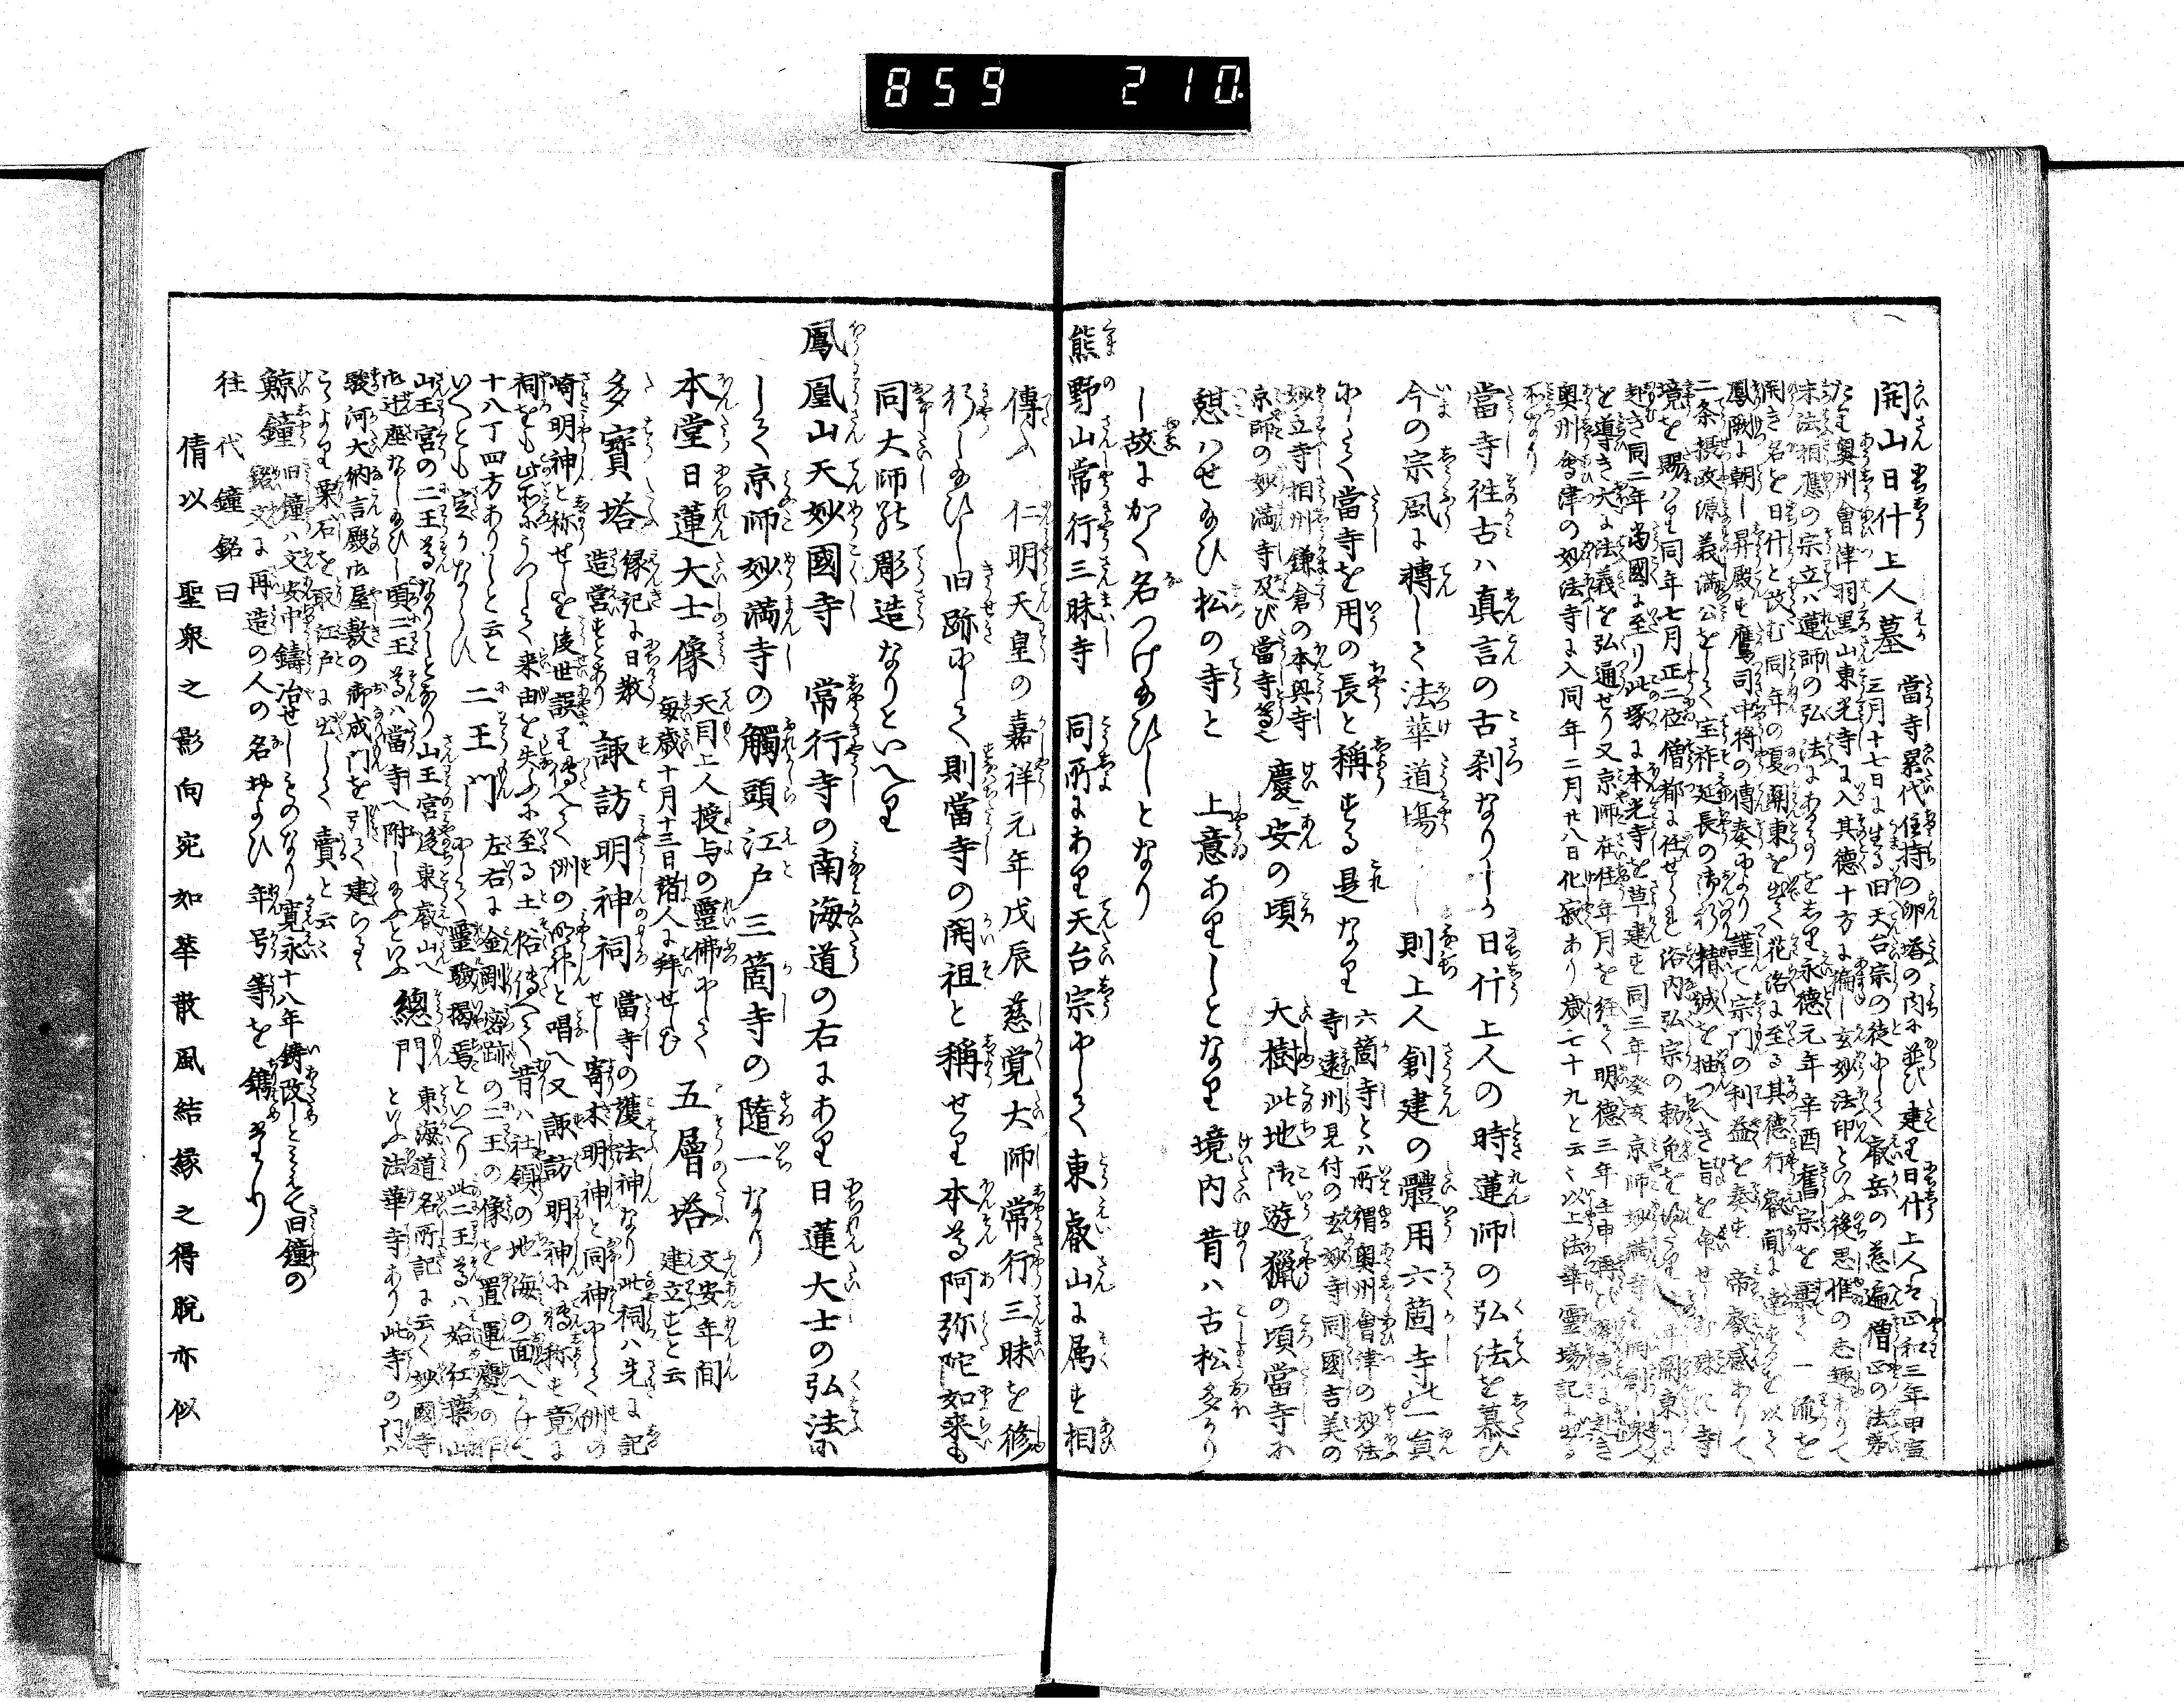 859 210
開山日什上人墓 當寺累代住持の卵塔の内に並び建り日什上人は正和三年甲寅
三月十七日に生る旧天台宗の徒にして叡岳の慈遍僧正の法弟
たり奥州會津羽黒山東光寺に入其徳十方に
末法相應の宗立ハ蓮師の弘法にあるを永徳元年辛酉舊宗を棄て一流を
開き名を日什と改む同年の夏関東を出て花洛に至る其徳行叡聞に達
鳳闕に朝し昇殿す鷹司中将の傳奏により謹て宗門の利益を奏す帝叡感ありて
二条摂政源義満公をして宝祚延長の御祈精誠を抽つへき旨を命せ
境を賜ハり同年七月正二位僧都に任せ洛内弘宗の
赴き同二年當國に至り此塚に本光寺を草建す同三年癸亥京師妙満寺を
を導き大に法義を弘通せり又京師在住年月を経て明徳三年壬申再び
奥州會津の妙法寺に入同年二月廿八日化寂あり歳七十九と云く以上法華霊場記に出る
所なり
當寺往古ハ真言の古刹なりしか日什上人の時蓮師の弘法を慕ひ
今の宗風に轉して法華道場 則上人創建の體用六箇寺の一員
にして當寺を用の長と稱する是なり 六箇寺とハ所謂奥州會津の妙法
寺遠州見付の玄妙寺同國吉美の
妙立寺相州鎌倉の本興寺
京師の妙満寺及び當寺等 慶安の頃 大樹此地御遊獵の頃當寺に
憩ハせ給ひ松の寺と 上意ありしとなり境内昔ハ古松多かり
し故にかく名つけ給ひしとなり
熊野山常行三昧寺 同所にあり天台宗にして東叡山に属す相
傳ふ 仁明天皇の嘉祥元年戊辰慈覚大師常行三昧を修
行し給ひし旧跡にして則當寺の開祖と稱せり本尊阿弥陀如来も
同大師の彫造なりといへり
鳳凰山天妙國寺 常行寺の南海道の右にあり日蓮大士の弘法に
して京師妙満寺の觸頭江戸三箇寺の隨一なり
本堂日蓮大士像 天目上人授与の霊佛にして
毎歳十月十三日諸人に拜せしむ 五層塔 文安年間
建立すと云
多寳塔 縁記に日
造営すとあり 諏訪明神祠 當寺の護法神なり此祠ハ先に記
せし寄木明神と同神にして洲の
崎明神と称せしを後世誤り傳へて洲の明神と唱へ又諏訪明神に称す竟に
祠をも此所にうつして来由を失ふに至る土俗傳へて昔ハ社領の地海の面へかけて
十八丁四方ありしと云と
いへども空しくなしひ 二王門 左右に金剛密跡の二王の像を置運慶の作
にして靈驗掲焉といへり此二王尊ハ始紅葉山
山王宮の二王尊なりしとなり山王宮後東叡山へ
御遷座なし給ひし頃二王尊ハ當寺へ附し給ふといふ 總門 東海道名所記に云く妙國寺
といふ法華寺あり此寺の門ハ
駿河大納言殿御屋敷の御成門を引て建らる
こゝより栗石を取江戸に出して賣と云云
鯨鐘 旧鐘ハ文安中鋳冶せしものなり寛永十八年鋳改しとみえて旧鐘の
銘文に再造の人の名および年号等を鐫たり
往代鐘銘曰
倩以 聖衆之影向宛如華散風結縁之得脱亦似